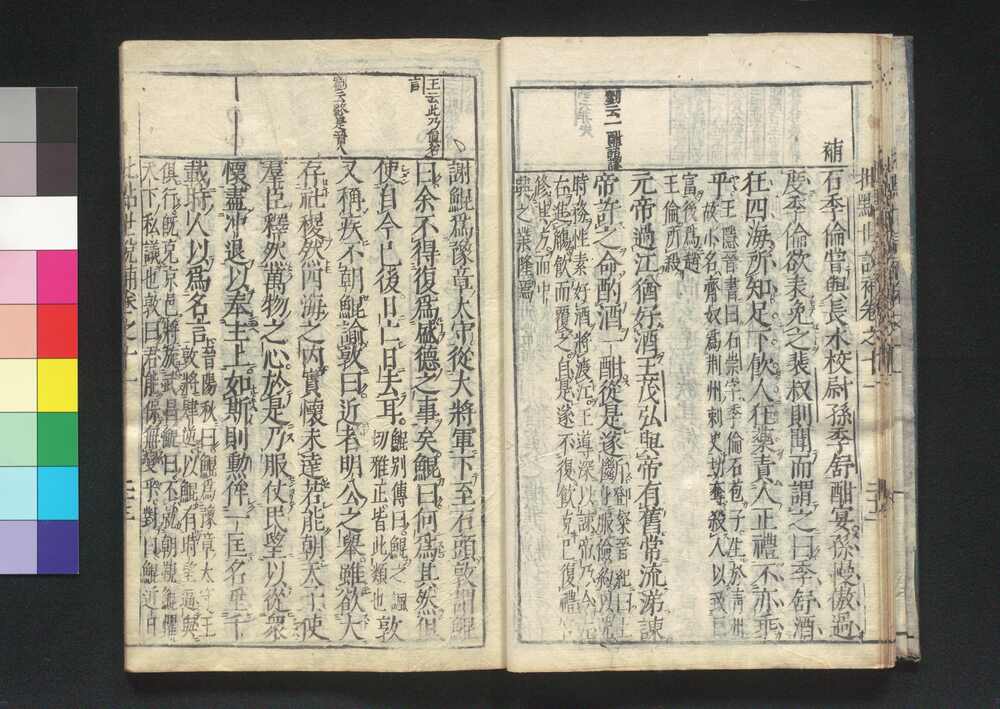 補
石季倫嘗與長水校尉孫季舒酣宴孫慢傲過
度季倫欲表免之裴叔則聞而謂之曰季舒酒
狂四海所知足下飲人狂藥責人正禮不亦乖
乎王隱晉書曰石崇字季倫石苞子生於青州
故小名齊奴爲荊州刺史劫奪殺人以致巨
富後爲趙
王倫所殺
元帝過江猶好酒王茂弘與帝有舊常流涕諫
帝許之命酌酒一酣從是遂斷鄧粲晉紀曰
上身服儉約以
時務性素好酒將渡江王導深以諫帝乃令左
右進觴飲而覆之自是遂不復飲克己復禮
修其方而中
興之業隆焉
王云此乃
言
謝鯤爲豫章太守從大將軍下至石頭敦謂鯤
曰余不得復爲盛德之事矣鯤曰何爲其然但
使自今已後日亡日去耳鯤別傳曰鯤之諷
切雅正皆此類也敦
又稱疾不朝鯤諭敦曰近者明公之舉雖欲大
存社稷然四海之內實懷未達若能朝天子使
羣臣釋然萬物之心於是乃服仗民望以從衆
懷盡沖退以奉主上如斯則勳侔一匡名垂千
載時人以爲名言晉陽秋曰鯤爲豫章太守王
敦將肆逆以鯤有時望逼與
俱行既克京邑將旋武昌鯤曰不就朝覲鯤懼
天下私議也敦曰君能保無變乎對曰鯤近日
批點世說補卷之十一